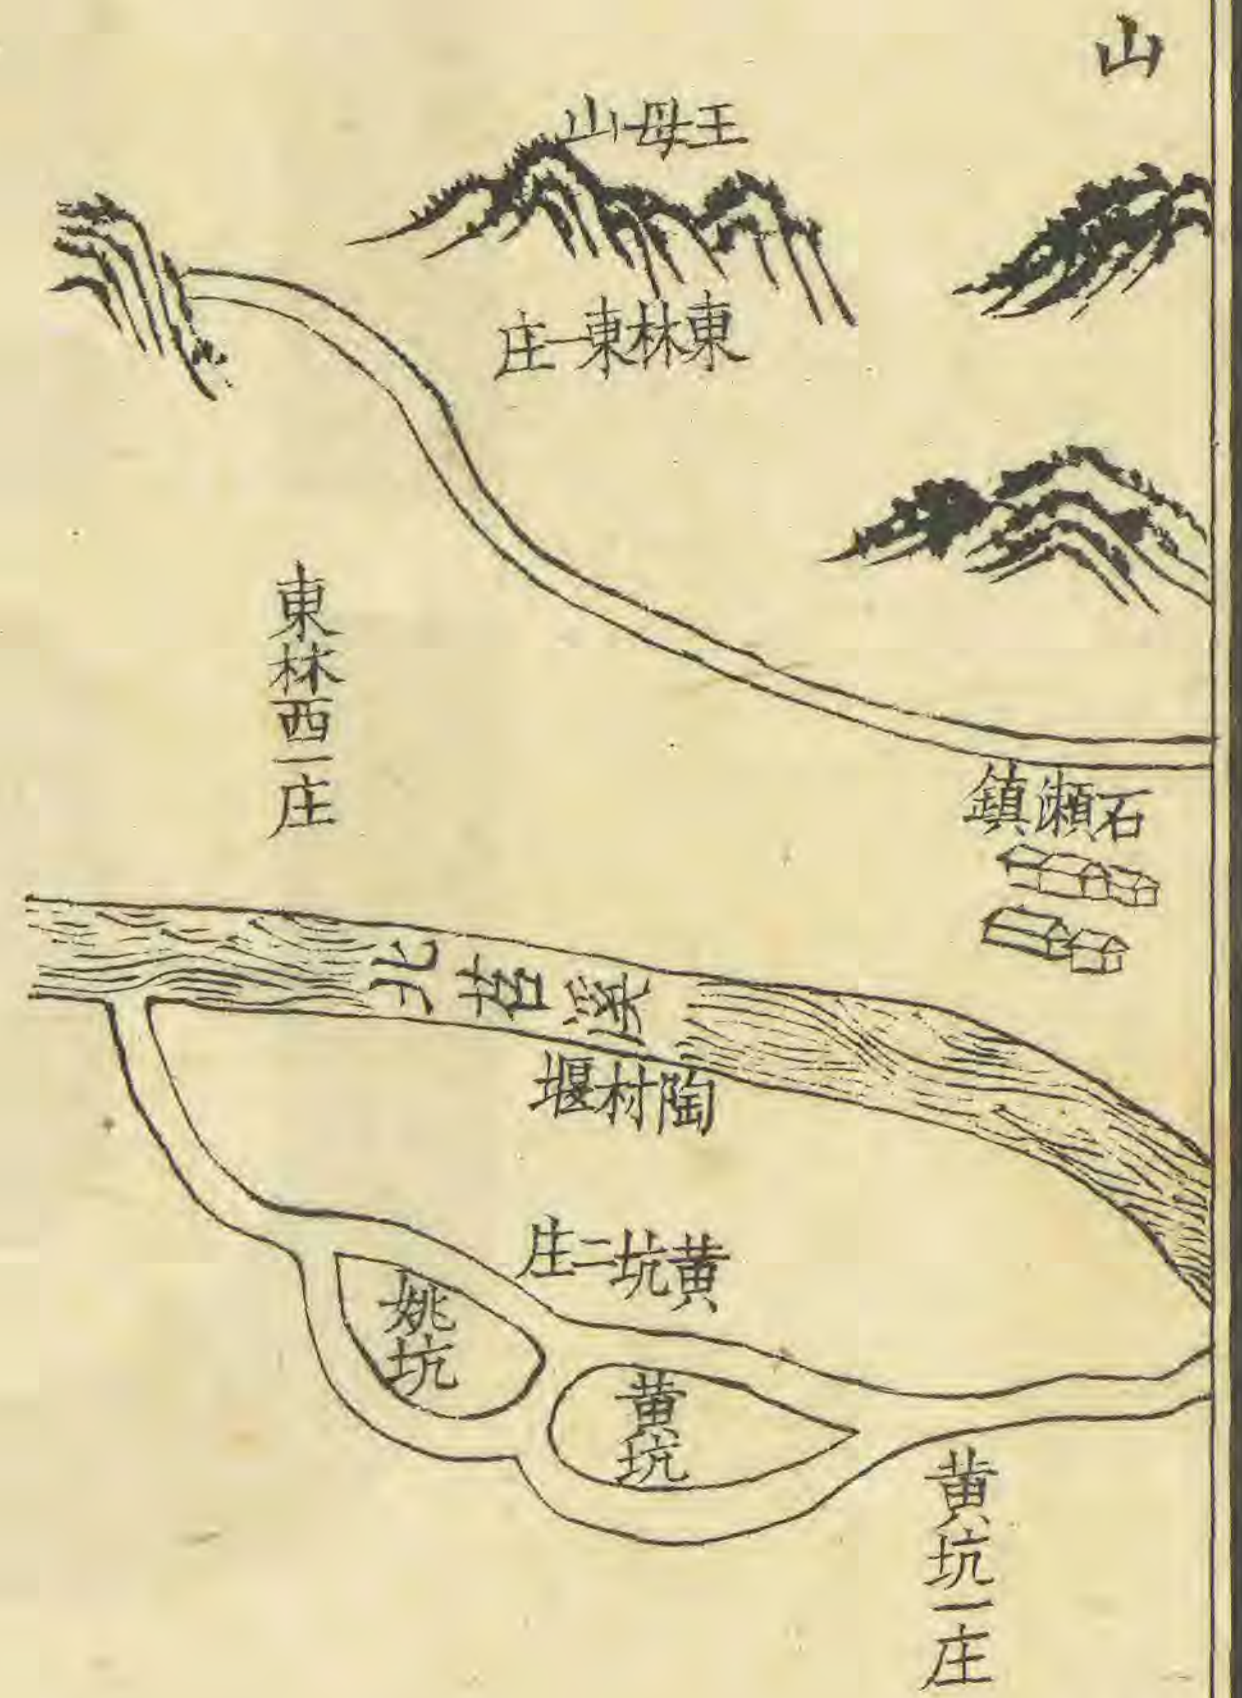 山
王母山
東林東一庄
東林西一庄
石瀬鎮
北苕溪
陶村堰
黄坑二庄
姚坑
黄坑
黄坑一庄